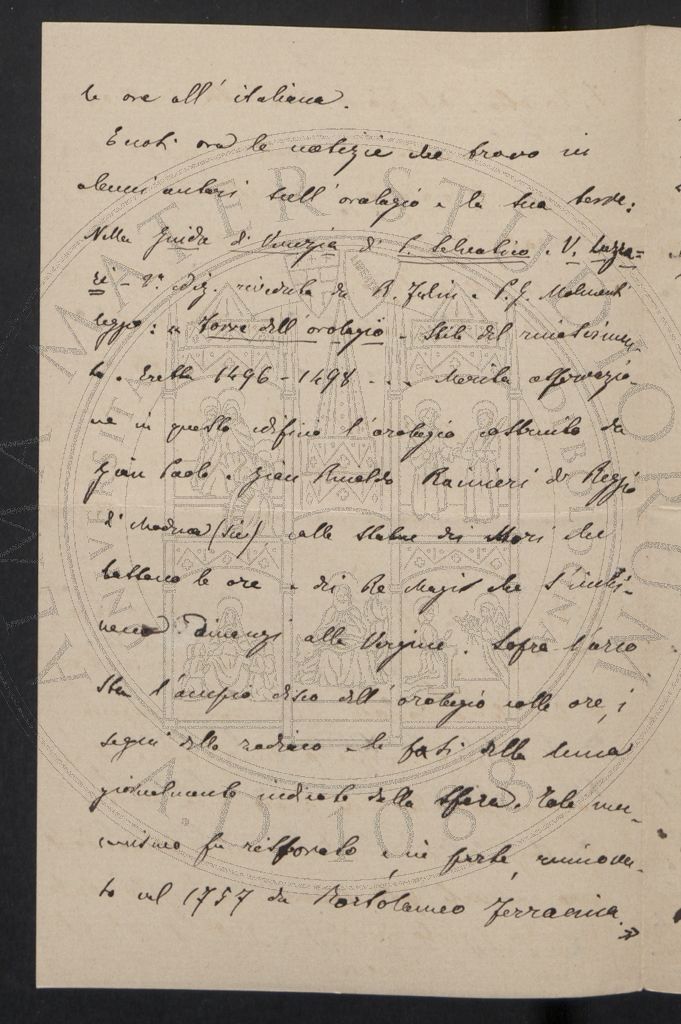 le ore all' italiana.
Eccoti ora le notizie che trovo in
alcuni autori sull' orologio e la sua torre:
Nella Guida di Venezia di P. Selvatico e V. Lazza=
ri - 2ª ediz. riveduta da R. Fulin e P. G. Molmenti
leggo: « Torre dell' orologio - Stile del rinascimen-
to. Eretta 1496 - 1498 ... Merita osservazio-
ne in questo edificio l' orologio costruito da
Gian Paolo e Gian Rinaldo Rainieri di Reggio
di Modena (sic) colle statue dei Mori che
battono le ore e dei Re Magi che s' inchi-
nano dinanzi alla Vergine. Sopra l' arco
sta l' ampio disco dell' orologio colle ore, i
segni dello zodiaco e le fasi della luna
giornalmente indicate dalla sfera. Tale mec-
canismo fu restaurato e, in parte, rinnova-
to nel 1757 da Bortolameo Ferracina. »
ALMA MATER STUDIORUM
UNIVERSITA
A.D. 1088